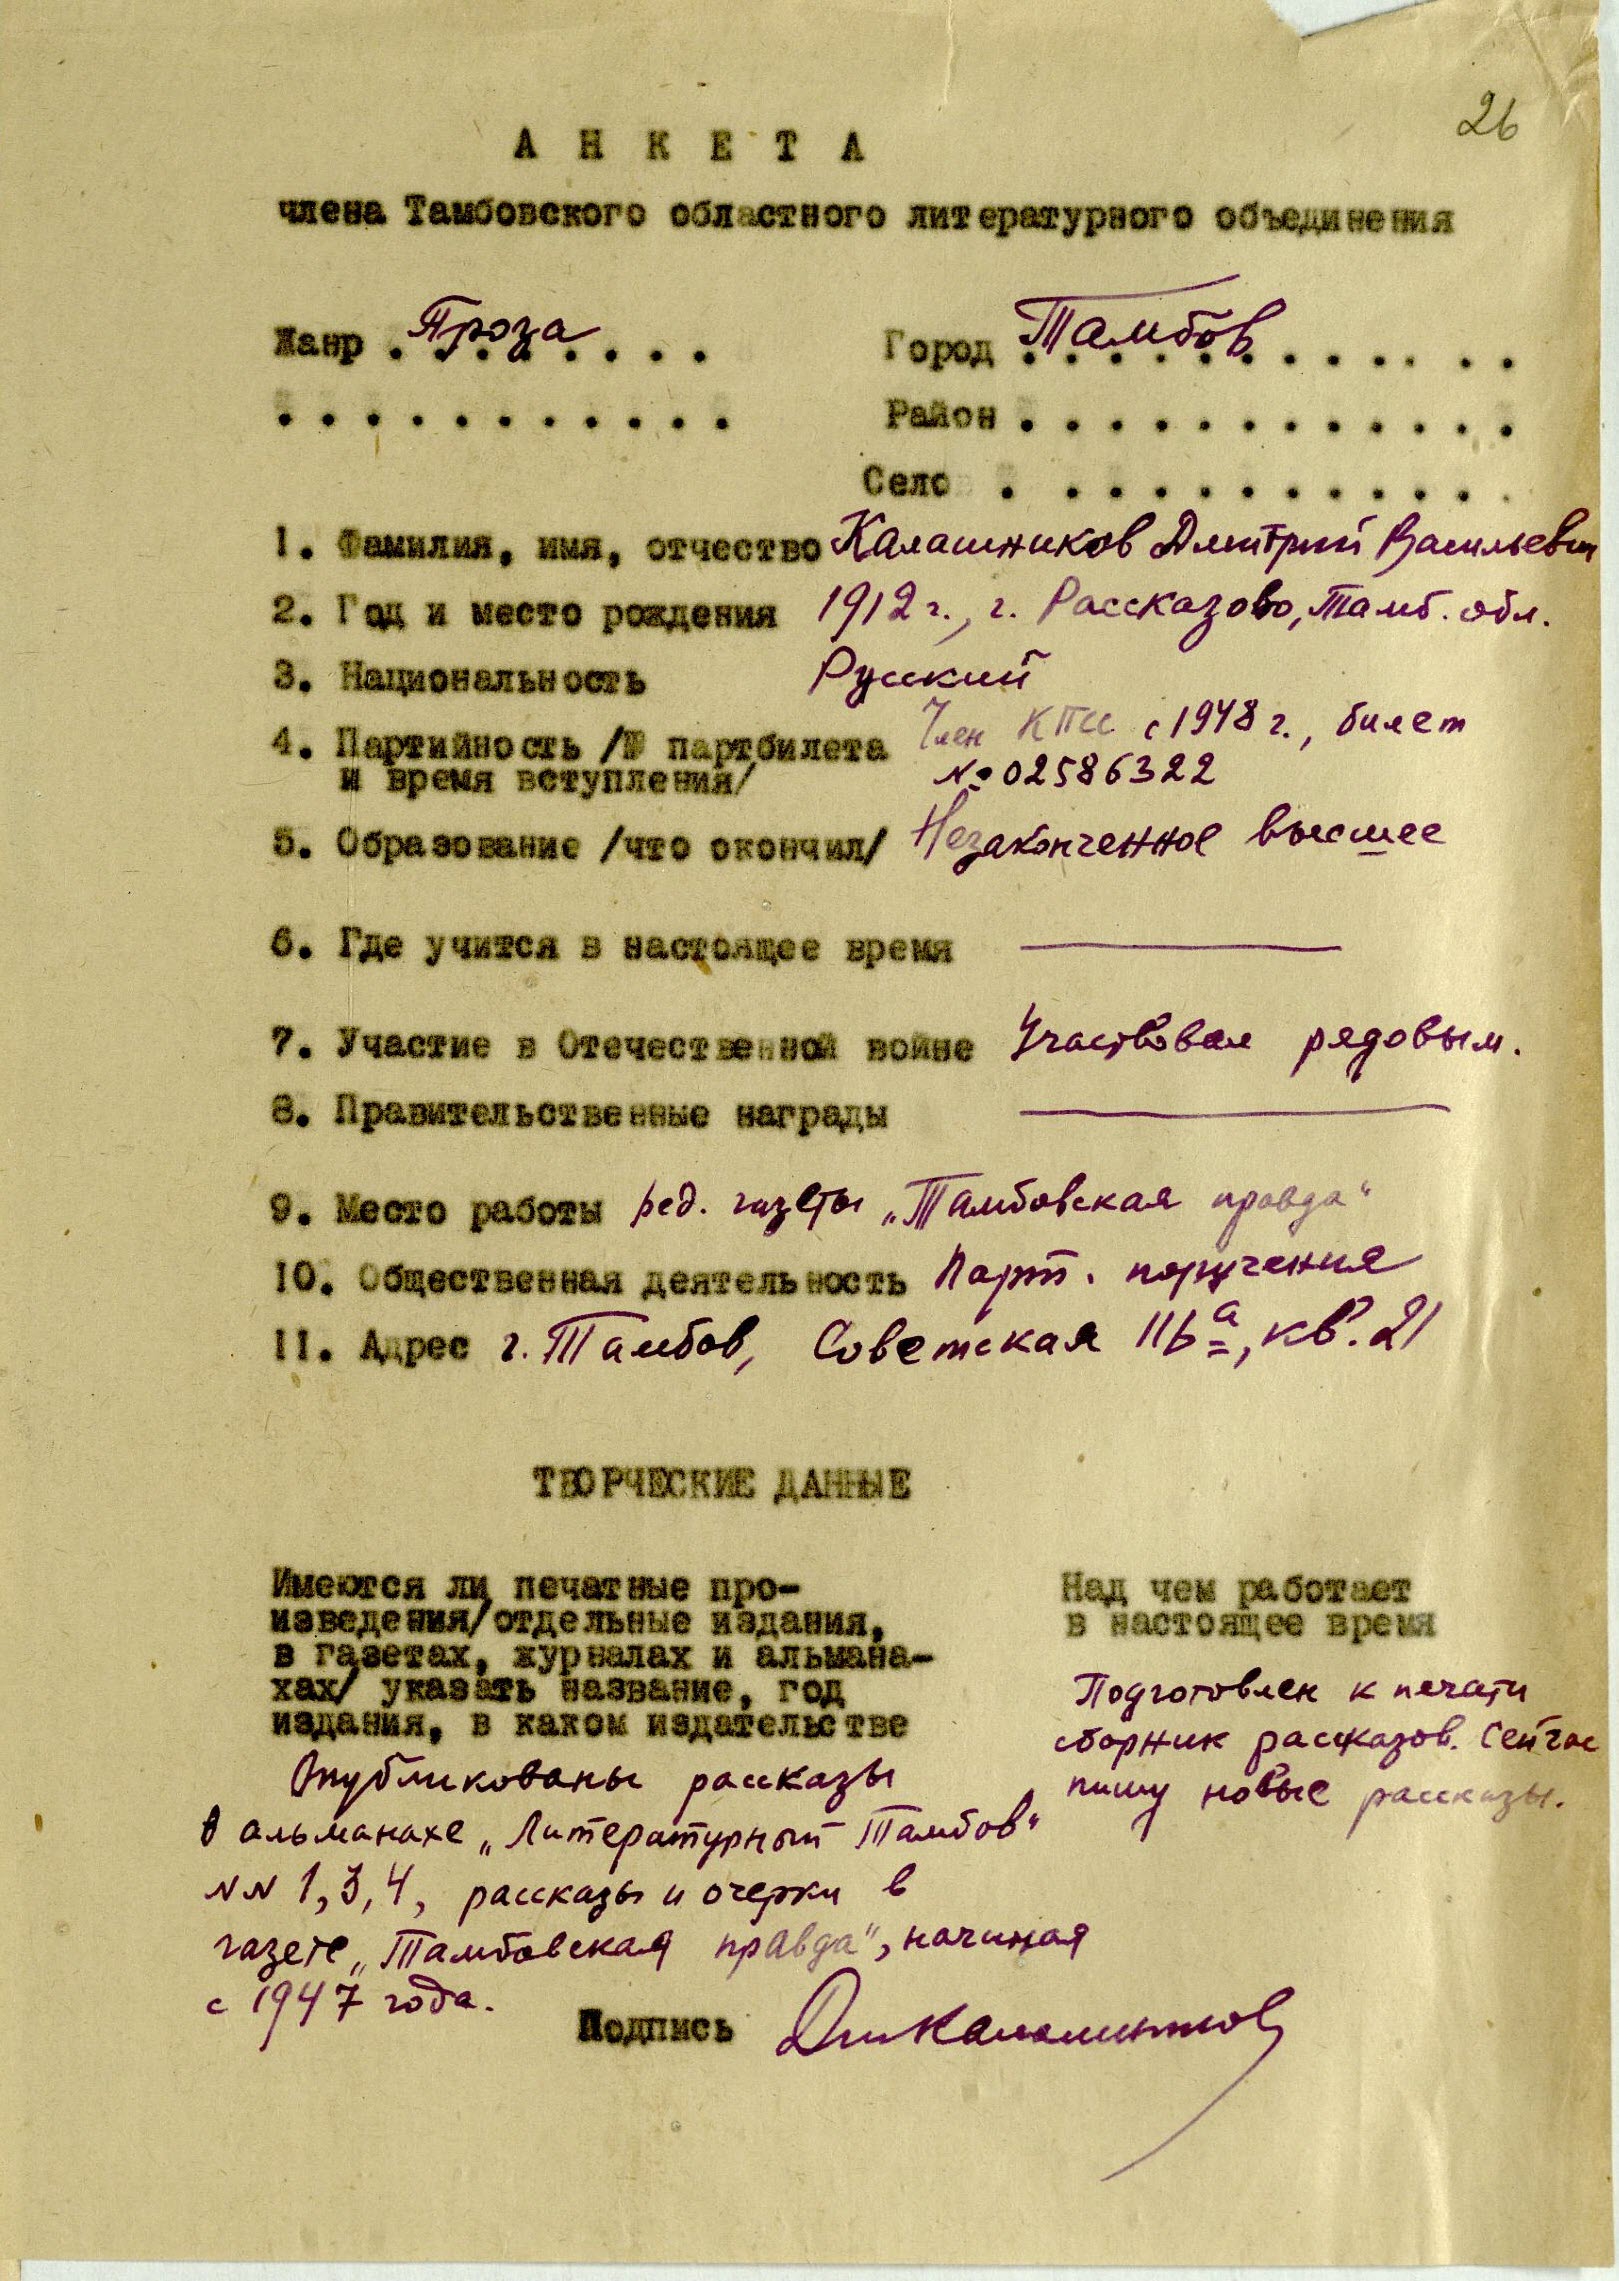 26
А Н К Е Т А
члена Тамбовского областного литературного объединения
Жанр . Проза . . . .
Город . Тамбов . . . .
. . . . . . . . . . .
Район . . . . . . . . . . . .
Село . . . . . . . . . . . .
1. Фамилия, имя, отчество Калашников Дмитрий Васильевич
2. Год и место рождения 1912 г., г. Рассказово, Тамб. обл.
3. Национальность Русский
4. Партийность /№ партбилета Член КПСС с 1948 г., билет
и время вступления/ № 02586322
5. Образование /что окончил/ Незаконченное высшее
6. Где учится в настоящее время
7. Участие в Отечественной войне Участвовал рядовым.
8. Правительственные награды
9. Место работы ред. газеты „Тамбовская правда“
10. Общественная деятельность Парт. поручения
11. Адрес г. Тамбов, Советская 116а, кв. 21
ТВОРЧЕСКИЕ ДАННЫЕ
Имеются ли печатные про-
изведения/отдельные издания,
в газетах, журналах и альмана-
хах/ указать название, год
издания, в каком издательстве
Опубликованы рассказы
в альманахе „Литературный Тамбов“
NN 1, 3, 4, рассказы и очерки в
газете „Тамбовская правда“, начиная
с 1947 года.
Над чем работает
в настоящее время
Подготовлен к печати
сборник рассказов. Сейчас
пишу новые рассказы.
Подпись Дм Калашников